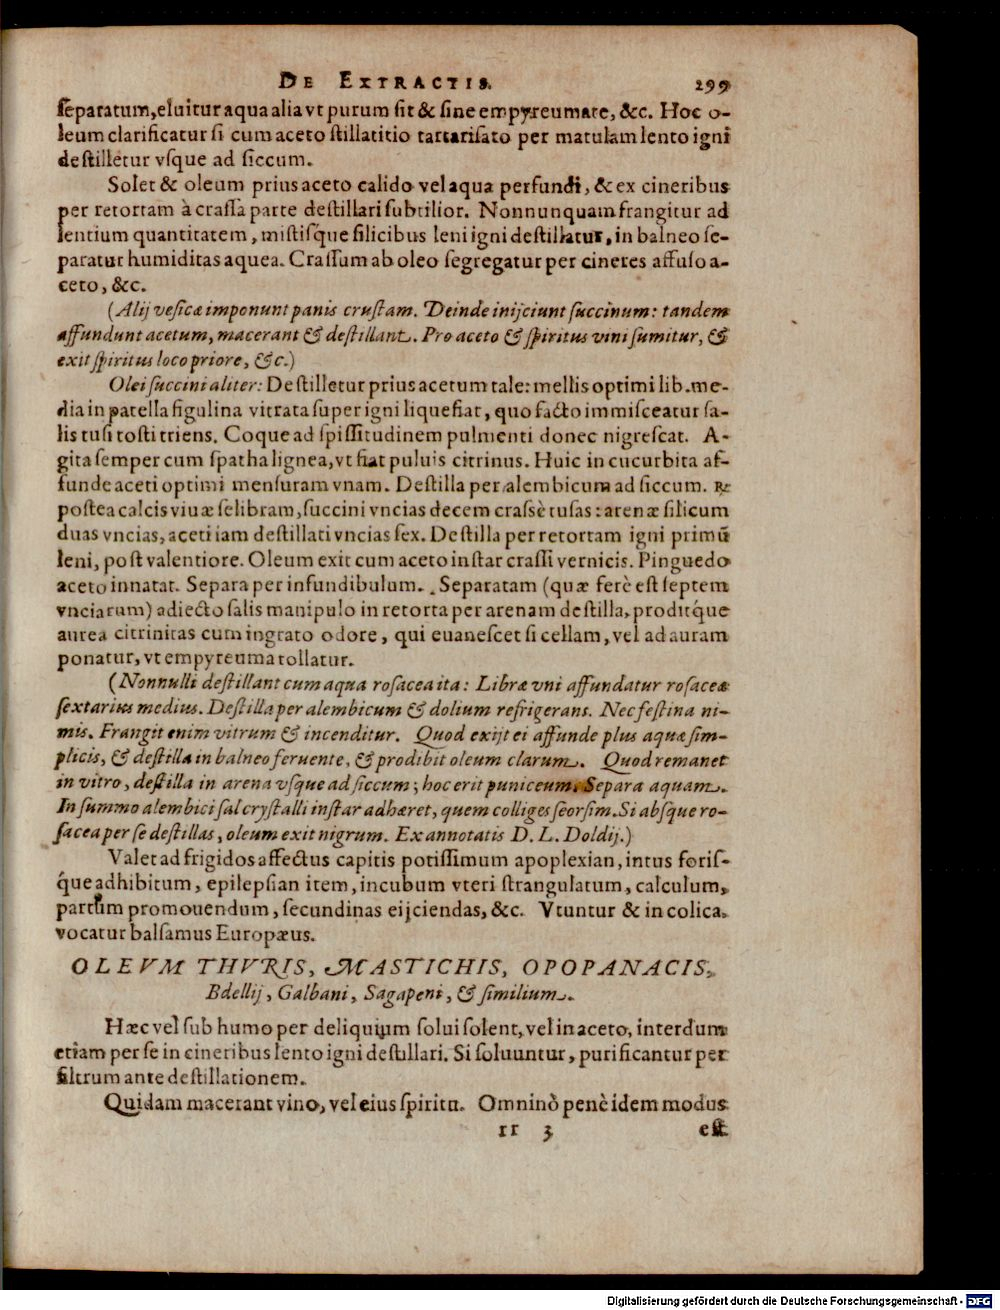 DE EXTRACTIS. 299
separatum, eluitur aqua alia vt purum sit & sine empyreumate, &c. Hoc o-
leum clarificatur si cum aceto stillatitio tartarisato per matulam lento igni
destilletur vsque ad siccum.
Solet & oleum prius aceto calido vel aqua perfundi, & ex cineribus
per retortam à crassa parte destillari subtilior. Nonnunquam frangitur ad
lentium quantitatem, mistisque silicibus leni igni destillatur, in balneo se-
paratur humiditas aquea. Crassum ab oleo segregatur per cineres affuso a-
ceto, &c.
(Alij vesicæ imponunt panis crustam. Deinde inijciunt succinum: tandem
affundunt acetum, macerant & destillant. Pro aceto & spiritus vini sumitur, &
exit spiritus loco priore, &c.)
Olei succini aliter: Destilletur prius acetum tale: mellis optimi lib. me-
dia in patella figulina vitrata super igni liquefiat, quo facto immisceatur sa-
lis tusi tosti triens. Coque ad spissitudinem pulmenti donec nigrescat. A-
gita semper cum spatha lignea, vt fiat puluis citrinus. Huic in cucurbita af-
funde aceti optimi mensuram vnam. Destilla per alembicum ad siccum. ℞
postea calcis viuæ selibram, succini vncias decem crassè tusas: arenæ silicum
duas vncias, aceti iam destillati vncias sex. Destilla per retortam igni primũ
leni, post valentiore. Oleum exit cum aceto instar crassi vernicis. Pinguedo
aceto innatat. Separa per infundibulum. Separatam (quæ ferè est septem
vnciarum) adiecto salis manipulo in retorta per arenam destilla, proditque
aurea citrinitas cum ingrato odore, qui euanescet si cellam, vel ad auram
ponatur, vt empyreuma tollatur.
(Nonnulli destillant cum aqua rosacea ita: Libræ vni affundatur rosaceæ
sextarius medius. Destilla per alembicum & dolium refrigerans. Nec festina ni-
mis. Frangit enim vitrum & incenditur. Quod exijt ei affunde plus aquæ sim-
plicis, & destilla in balneo feruente, & prodibit oleum clarum. Quod remanet
in vitro, destilla in arena vsque ad siccum; hoc erit puniceum. Separa aquam.
In summo alembici sal crystalli instar adhæret, quem colliges seorsim. Si absque ro-
sacea per se destillas, oleum exit nigrum. Ex annotatis D. L. Doldij.)
Valet ad frigidos affectus capitis potissimum apoplexian, intus foris-
que adhibitum, epilepsian item, incubum vteri strangulatum, calculum,
partum promouendum, secundinas eijciendas, &c. Vtuntur & in colica,
vocatur balsamus Europæus.
OLEVM THVRIS, MASTICHIS, OPOPANACIS,
Bdellij, Galbani, Sagapeni, & similium.
Hæc vel sub humo per deliquium solui solent, vel in aceto, interdum
etiam per se in cineribus lento igni destillari. Si soluuntur, purificantur per
filtrum ante destillationem.
Quidam macerant vino, vel eius spiritu. Omninò penè idem modus
rr 3 est
Digitalisierung gefördert durch die Deutsche Forschungsgemeinschaft - DFG